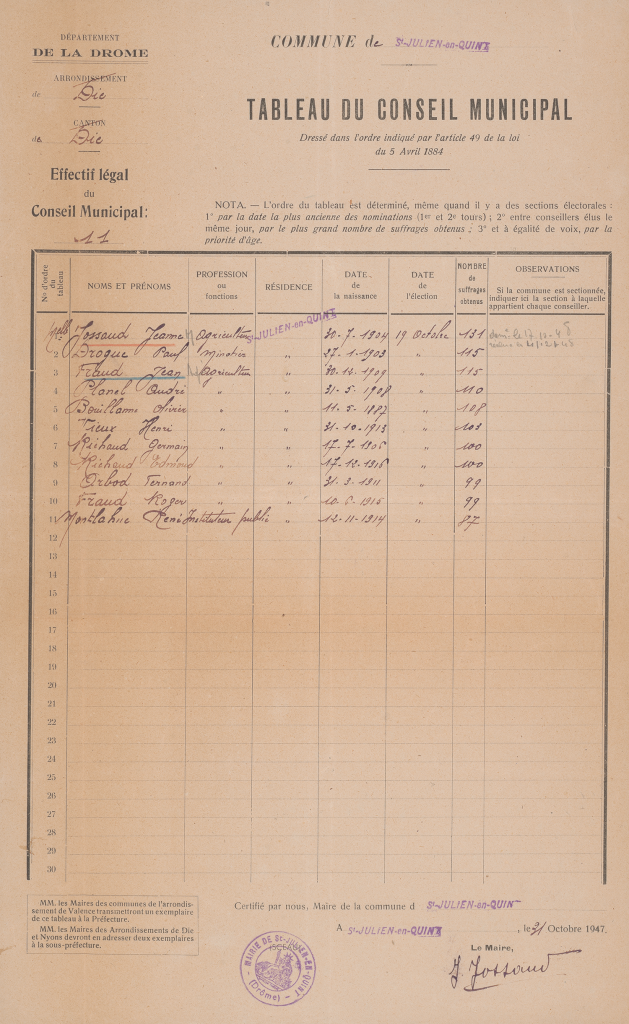 DÉPARTEMENT
DE LA DROME
ARRONDISSEMENT
de Die
CANTON
de Die
Effectif légal
du
Conseil Municipal:
11
COMMUNE de St-JULIEN-en-QUINT
TABLEAU DU CONSEIL MUNICIPAL
Dressé dans l'ordre indiqué par l'article 49 de la loi
du 5 Avril 1884
NOTA. — L'ordre du tableau est déterminé, même quand il y a des sections électorales :
1° par la date la plus ancienne des nominations (1er et 2e tours) ; 2° entre conseillers élus le
même jour, par le plus grand nombre de suffrages obtenus ; 3° et à égalité de voix, par la
priorité d'âge.
Nos d'ordre du tableau NOMS ET PRÉNOMS PROFESSION ou fonctions RÉSIDENCE DATE de la naissance DATE de l'élection NOMBRE de suffrages obtenus OBSERVATIONS Si la commune est sectionnée, indiquer ici la section à laquelle appartient chaque conseiller.
Jossaud Jeanne Agriculteur St-JULIEN-en-QUINT 30-7-1904 19 Octobre 131
2 Drogue Paul Minotier " 27-1-1903 " 115
3 Fraud Jean Agriculteur " 30-12-1909 " 115
4 Planel André " " 31-5-1908 " 110
5 Bouillanne Olivier " " 11-5-1887 " 108
6 Vieux Henri " " 31-10-1913 " 103
7 Michaud Germain " " 17-7-1906 " 100
8 Michaud Edmond " " 17-12-1916 " 100
9 Orbod Fernand " " 31-3-1911 " 99
10 Fraud Roger " " 10-6-1916 " 99
11 Montlahuc René Instituteur public " 12-11-1914 " 87
12
13
14
15
16
17
18
19
20
21
22
23
24
25
26
27
28
29
30
MM. les Maires des communes de l'arrondissement de Valence transmettront un exemplaire
de ce tableau à la Préfecture.
MM. les Maires des Arrondissements de Die
et Nyons devront en adresser deux exemplaires
à la sous-préfecture.
Certifié par nous, Maire de la commune d St-JULIEN-en-QUINT
A St-JULIEN-en-QUINT, le 31 Octobre 1947.
Le Maire,
J. Jossaud
MAIRIE DE St-JULIEN-EN-QUINT
(Drôme)